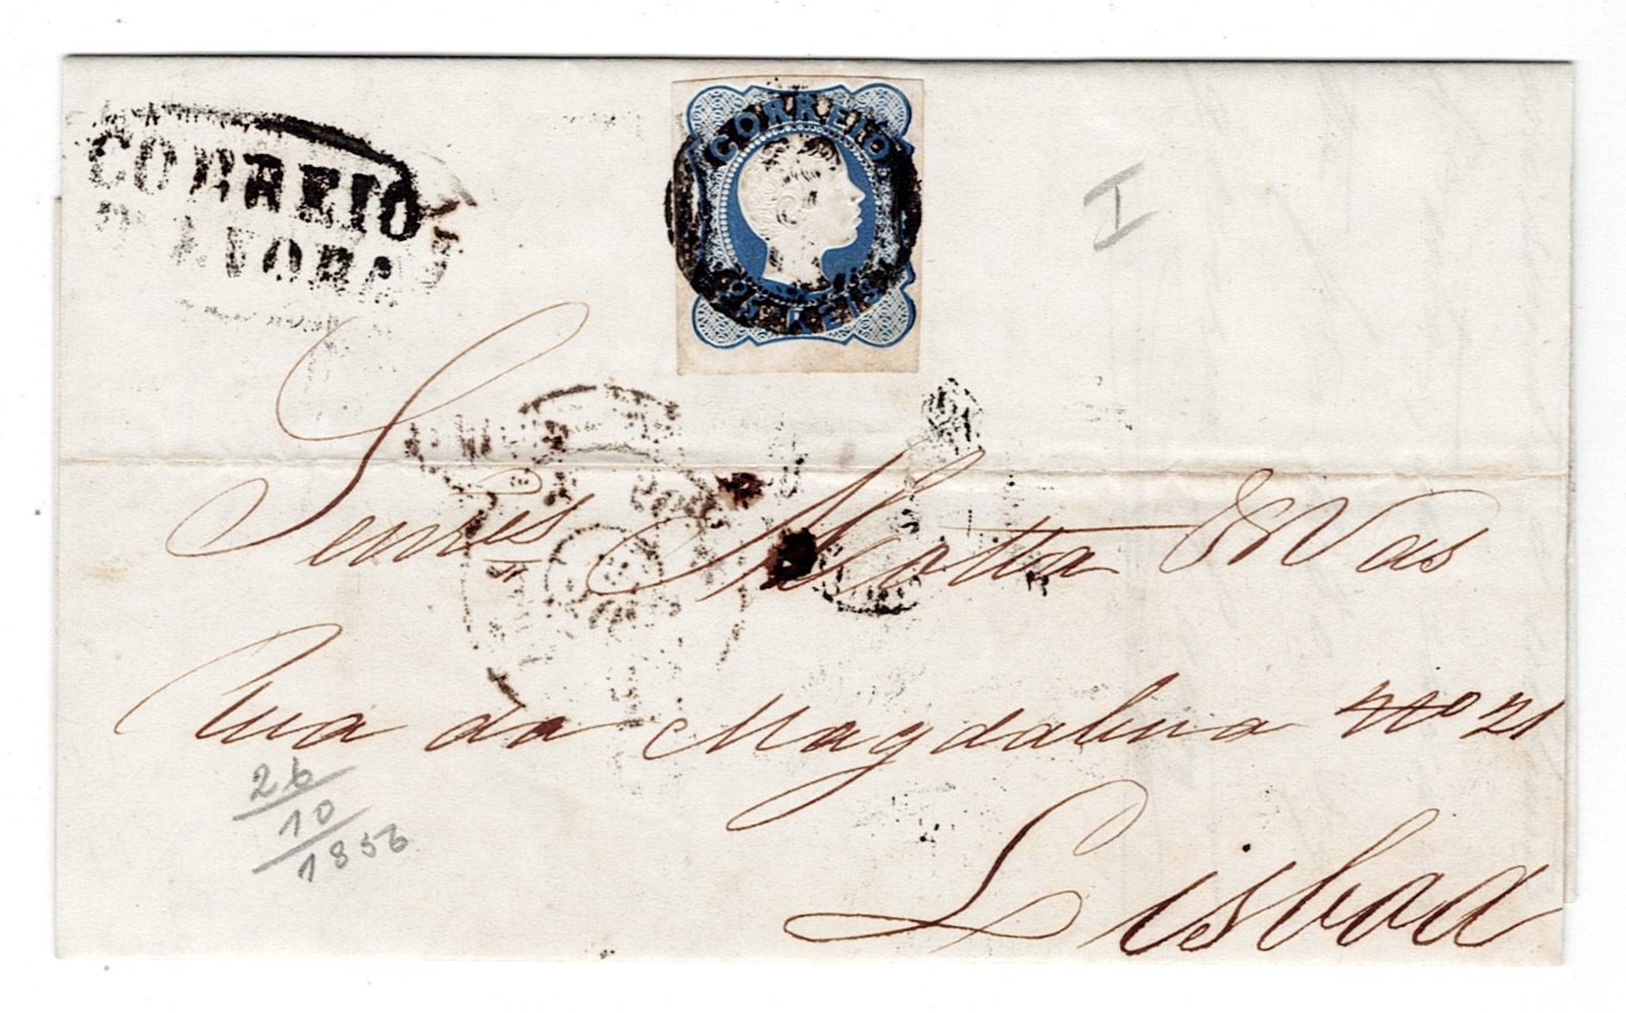 CORREIO
D'EVORA
CORREIO
REIS
I
Senr.es Motta & Vas
Rua da Magdalena Nº 21
26/10/1856
Lisboa